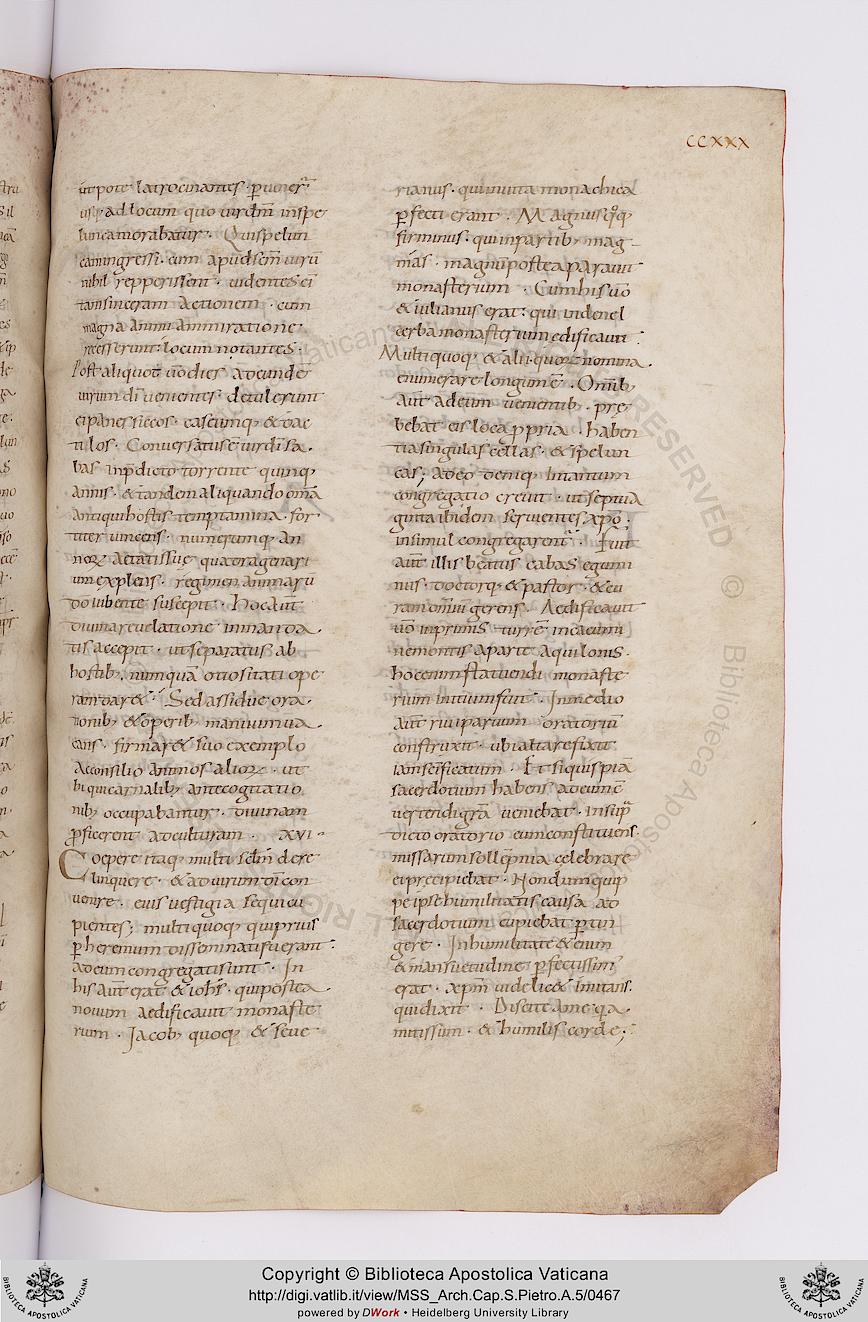 CCXXX
ut pote latrocinantes · ꝑuener̄
ad locum quo uir dn̄i in spe
lunca morabatur · Qui spelun
cam ingressi · cum apud sem̄ uirū
nihil repperissent · uidentes ei
tam sinceram actionem · cum
magna animi ammiratione ·
recesserunt: locum notantes ·
Post aliquot ū dies adeunder
uirum dī uenientes · detulerunt
ei panes siccos · caseumq; & dac
tilos · Conuersatus ē uir dī sa
bas in p̄dicto torrente quinq;
annis · & tandem aliquando om̄a
antiqui hostis temptamina · for
titer uincens · numerumq; an
noꝝ aetatis suę quadragenari
um explens · regimen animarū
dō iubente suscepit · Hoc aut̄
diuina reuelatione in manda
tis accepit · ut separatus ab
hostib; numquā otiositati ope
ram dar& · Sed assidue ora
tionib; & operib; manuum ua
cans · firmar& suo exemplo
ac consilio animos alioꝝ · ut
hi qui carnalib; ante cogitatio
nib; occupabantur · diuinam
ꝓficerent ad culturam · XVI ·
Coepere itaq; multi sc̄lm dere
linquere · & ad uirum dī con
uenire · eius uestigia sequi cu
pientes; multi quoq; qui prius
ꝑ heremum disseminati fuerant ·
ad eum congregati sunt · In
his aut̄ erat & ioh̄s · qui postea
nouum aedificauit monaste
rium · Jacob; quoq; & seue
rianus · qui in uita monachica
ꝑfecti erant · Magnus q̊q;
firminus · qui in partib; mag
mas · magnū postea parauit
monasterium · Cum his ū
& iulianus erat: qui in denel
cerba monasterium edificauit ·
Multi quoq; & alii · quoꝝ nomina
enumerare longum ē · Omīb;
aut̄ ad eum uenientib; · prę
bebat eis loca ꝓpria · haben
tia singulas cellas · & spelun
cas; adeo deniq; in tantum
congregatio creuit · ut septua
ginta ibidem seruientes xp̄o ·
in simul congregarent̄ · Fuit
aut̄ illis beatus sabas egumi
nus · doctorq; & pastor · & cu
ram omniū gerens · Aedificauit
ū in primis turrē in cacumi
ne montis a parte aquilonis ·
hoc enim statuendi monaste
rium initium fuit · In medio
aut̄ riui paruum oratoriū
construxit · ubi altare fixit
iam sc̄ificatum · Et si quispiā
sacerdotum habens ad eum ē
uertendi grā ueniebat · in sup̄
dicto oratorio eum constituens
missarum sollēpnia celebrare
ei precipiebat · Nondum quip
pe ipse humilitatis causa ad
sacerdotium cupiebat ꝑtin
gere · In humilitate & enim
& mansuetudine ꝑfectissim'
erat · xp̄m uidelic& imitans ·
qui dixit · Discite a me qa
mitis sum · & humilis corde;
Copyright © Biblioteca Apostolica Vaticana
http://digi.vatlib.it/view/MSS_Arch.Cap.S.Pietro.A.5/0467
powered by DWork • Heidelberg University Library